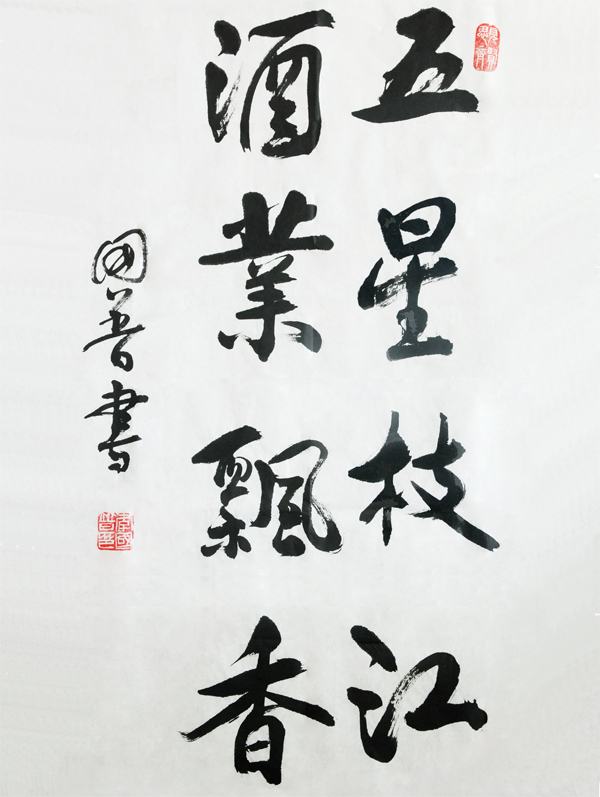 五星枝江
酒業飄香
国普書